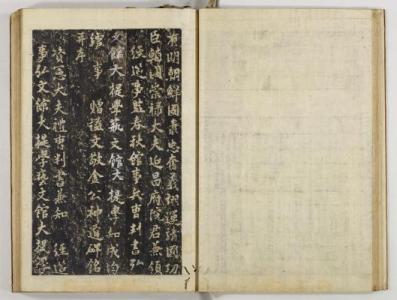 有明朝鮮國秉忠奮義翊運靖國功
臣輔國崇祿大夫延昌府院君兼領
經筵事監春秋館事兵曹判書弘
文館大提學藝文館大提學知成均
館事 贈謚文敬金公神道碑銘
幷序
資憲大夫禮曹判書兼知 經筵
事弘文館大提學藝文館大提學